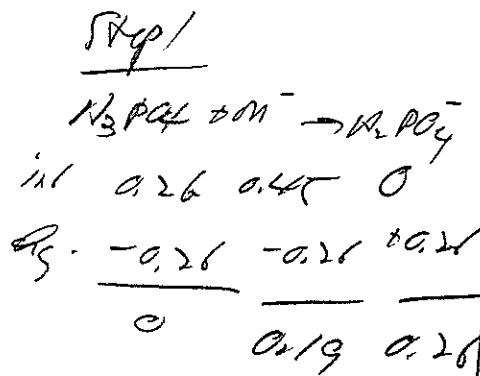 Step 1
H₃PO₄ + OH⁻ → H₂PO₄⁻
int 0.26 0.45 0
-0.26 -0.26 +0.26
0 0.19 0.26